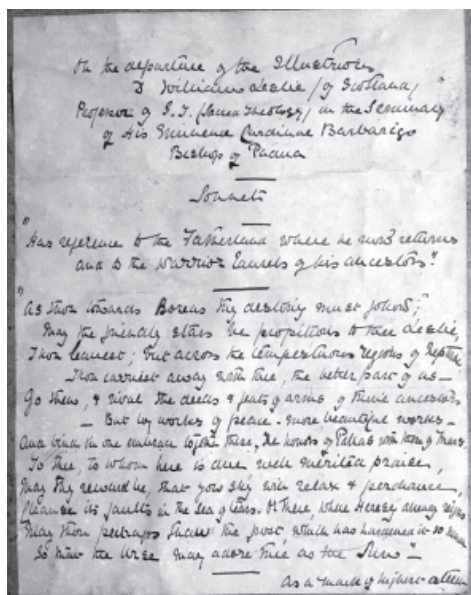 On the departure of the Illustrious
D William Leslie (of Scotland,)
Professor of S. T. (Sacra Theology) in the Seminary
of His Eminence Cardinal Barbarigo
Bishop of Padua
Sonnet
"Has reference to the Fatherland where he now returns
and to the warrior laurels of his ancestors".
"As thou towards Boreas thy destiny must follow,"
May the friendly stars be propitious to thee Leslie,
Thou leavest; but across the tempestuous regions of Neptune
Thou carriest away with thee, the better part of us—
Go then, & rival the deeds & feats of arms of thine ancestors
— But by works of peace - more beautiful works—
And bind in one embrace together there, the honors of Pallas with those of Mars,
To thee, to whom here is due well merited praise,
May thy reward be, that sky will relax & perchance,
cleanse its faults in the sea of tears. Or there, where Heresy always reigns
May thou perhaps the post, which has hardened it so
So that the Urse may adore thee as the Sun"—
As a mark of highest esteem